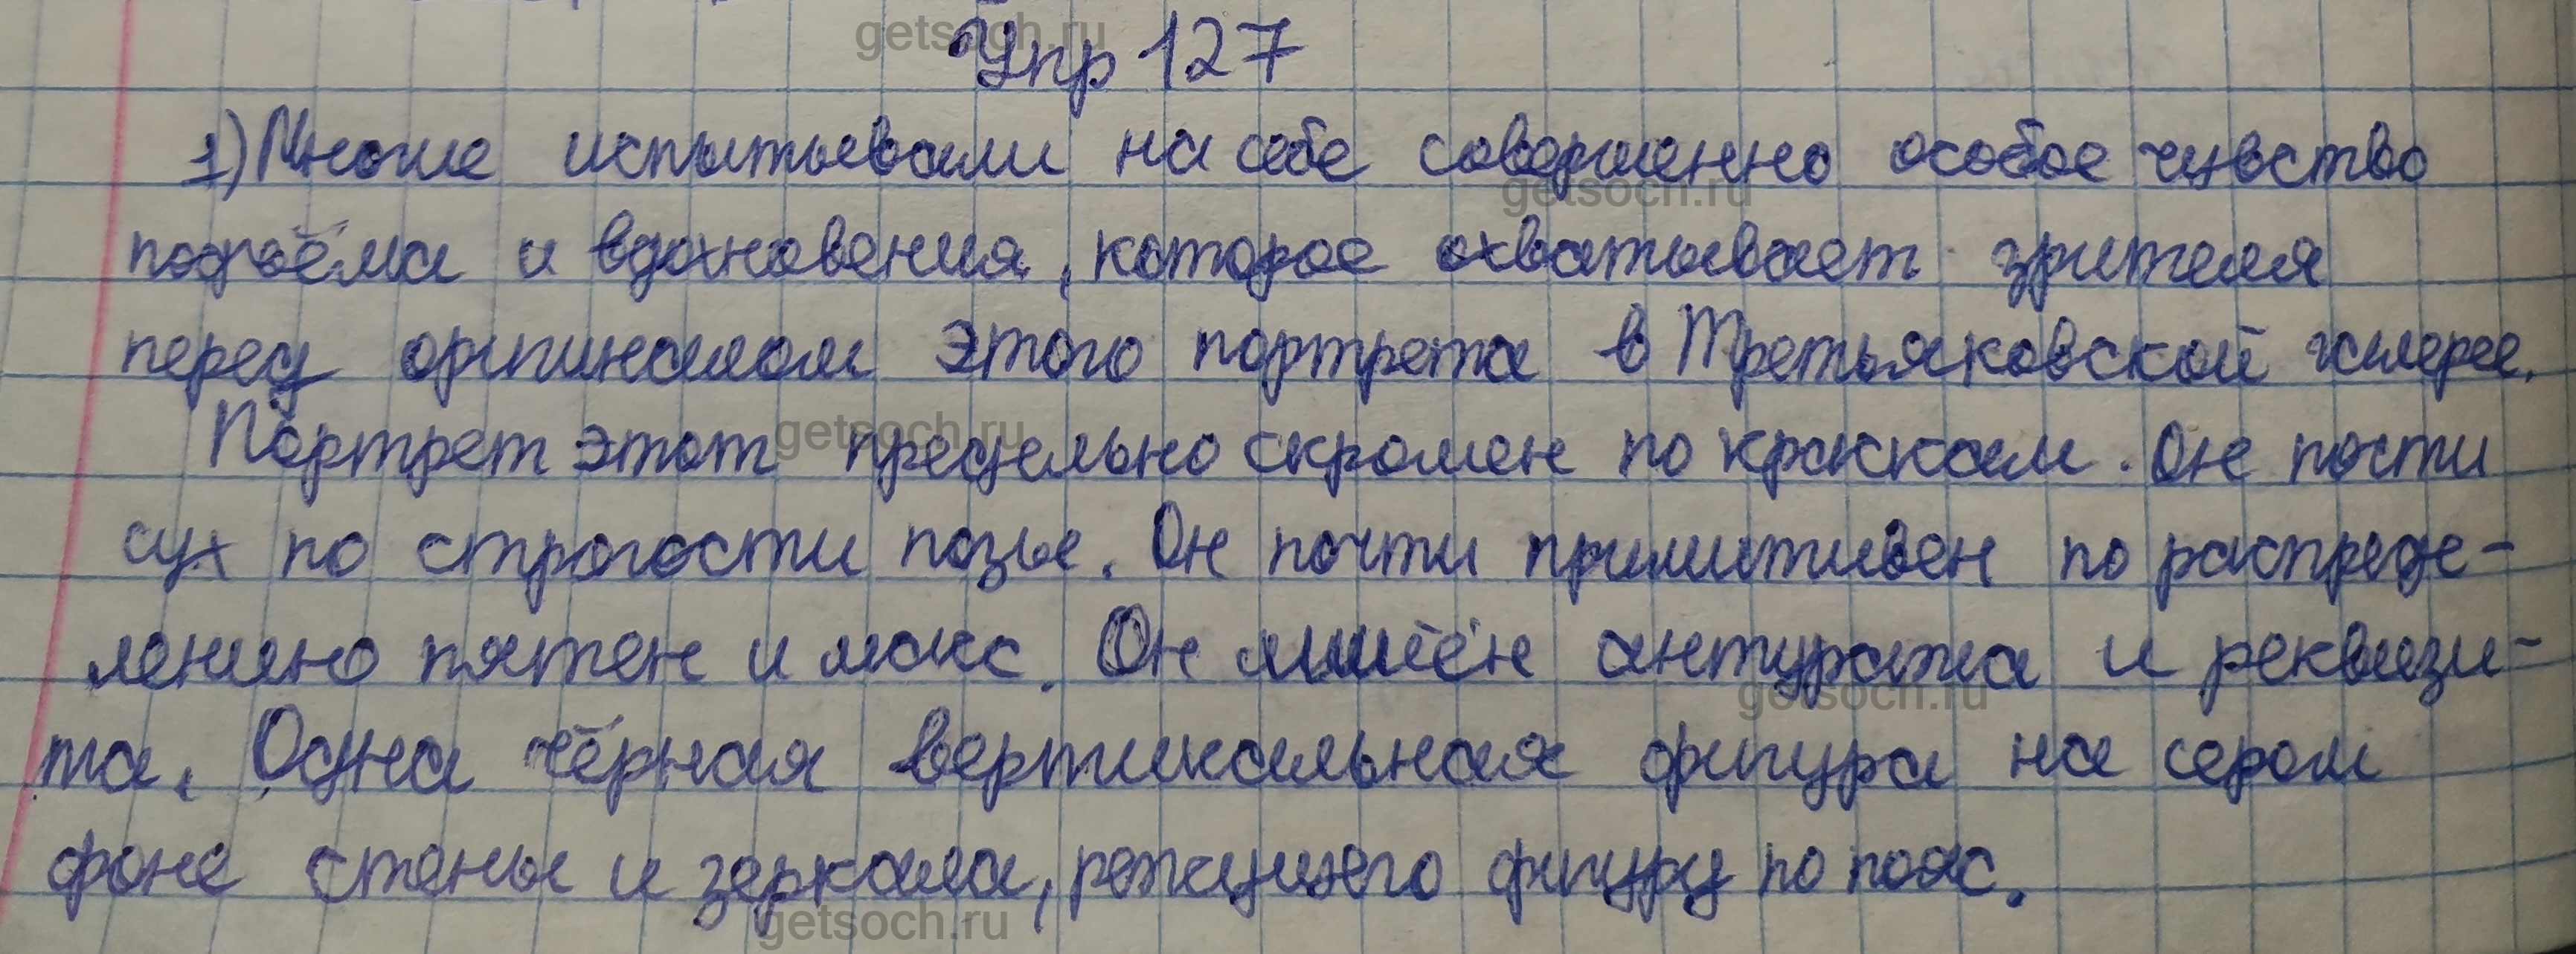 Упр 127
1) Многие испытывали на себе совершенно особое чувство
подъёма и вдохновения, которое охватывает зрителя
перед оригиналом этого портрета в Третьяковской галерее.
Портрет этот предельно скромен по краскам. Он почти
сух по строгости позы. Он почти примитивен по распреде-
лению пятен и масс. Он лишён антуража и реквизи-
та. Одна чёрная вертикальная фигура на сером
фоне стены и зеркала, режущего фигуру по пояс.
getsoch.ru
getsoch.ru
getsoch.ru
getsoch.ru
getsoch.ru